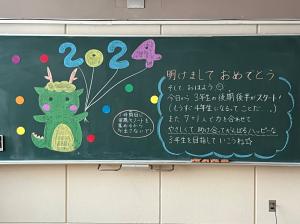 2024
明けまして おめでとう
そして、おはよう
今日から 3年生の後期後半がスタート!
(もうすぐ4年生になるってこと…)
また 力を合わせて
やさしくて 助け合ってがんばるハッピーな
3年生を目指していこうね